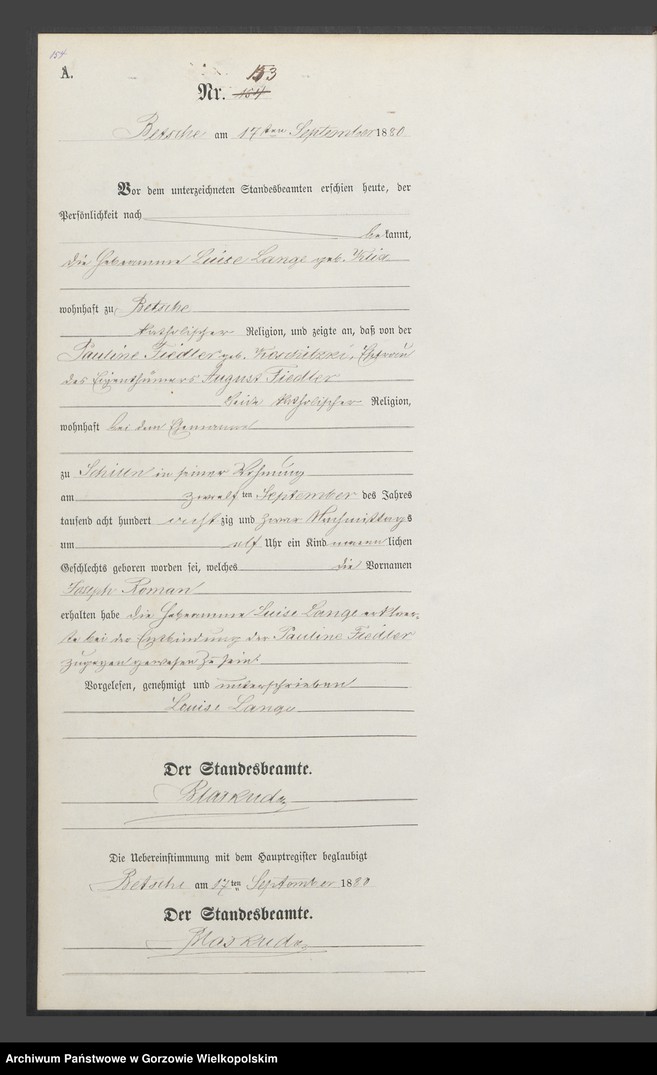 154
A.
153
Nr. 154
Betsche am 17ten September 1880
Vor dem unterzeichneten Standesbeamten erschien heute, der
Persönlichkeit nach
bekannt,
die Hebeamme Luise Lange geb. Klix
wohnhaft zu Betsche
katholischer Religion, und zeigte an, daß von der
Pauline Fiedler geb. Ehefrau
des Eigenthümers August Fiedler
beide katholischer Religion,
wohnhaft bei dem Ehemanne
zu Schilln in seiner Wohnung
am zwölf ten September des Jahres
tausend acht hundert acht zig und zwar Nachmittags
um elf Uhr ein Kind männlichen
Geschlechts geboren worden sei, welches die Vornamen
Joseph Roman
erhalten habe die Hebeamme Luise Lange erklaer-
te bei der Entbindung der Pauline Fiedler
zugegen gewesen zu sein.
Vorgelesen, genehmigt und unterschrieben
Louise Lange
Der Standesbeamte.
Die Uebereinstimmung mit dem Hauptregister beglaubigt
Betsche am 17ten September 1880
Der Standesbeamte.
Archiwum Państwowe w Gorzowie Wielkopolskim